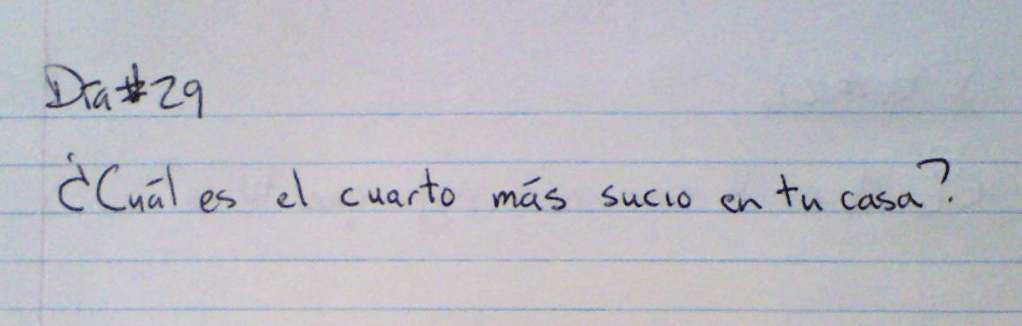 Día #29
¿Cuál es el cuarto más sucio en tu casa?